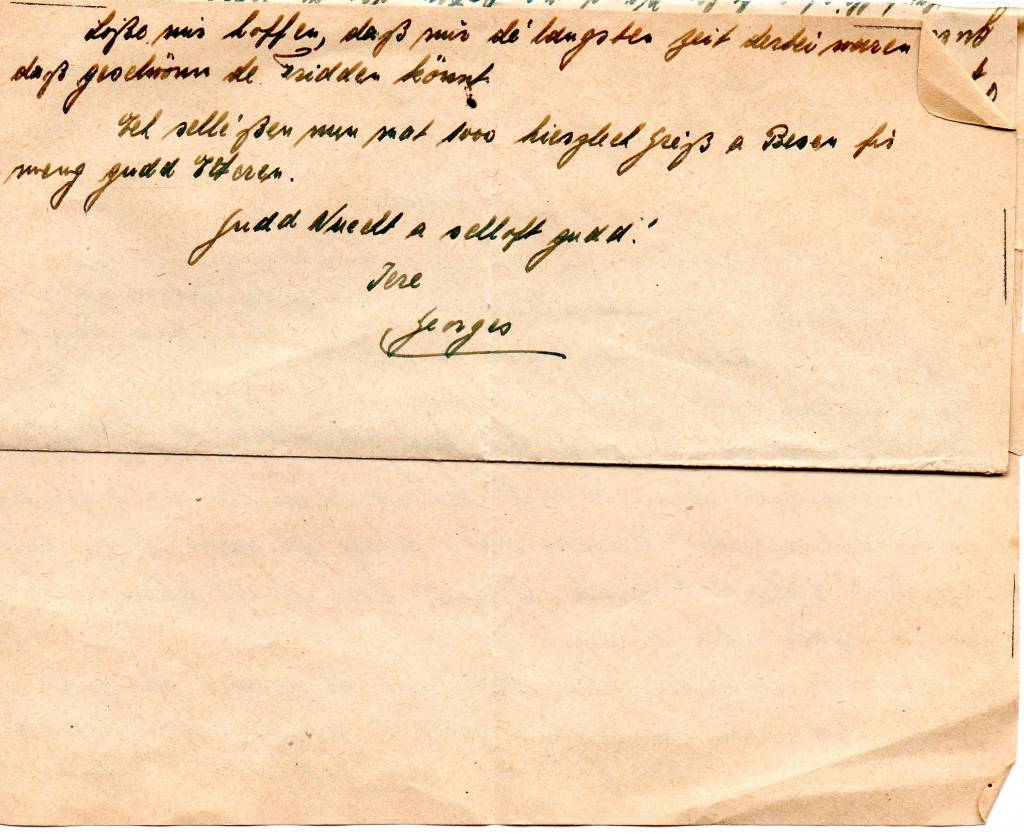 Loße mir hoffen, daß mir dé längsten Zeit derbei waren
daß geschwönn de Fridden könnt
Ech schléßen nun mat 1000 hierzlech Gréiß a Besen fir
meng gudd Elteren.
Gudd Nuecht a schloft gudd!
Iere
Georges